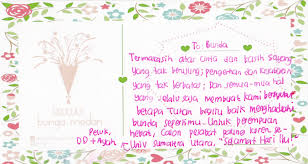 To Bunda
Terimakasih atas cinta dan kasih sayang
yang tak berujung, pengertian dan kesabaran
yang tak terbatas, Dan semua-mua hal
yang selalu saja membuat kami bersyukur
betapa Tuhan begitu baik menghadiahi
bunda sepertimu. Untuk perempuan
hebat, Calon pejabat paling keren se-
Univ sumatra utara, "Selamat Hari Ibu"
bunda medan
Peluk,
DD + Ayah